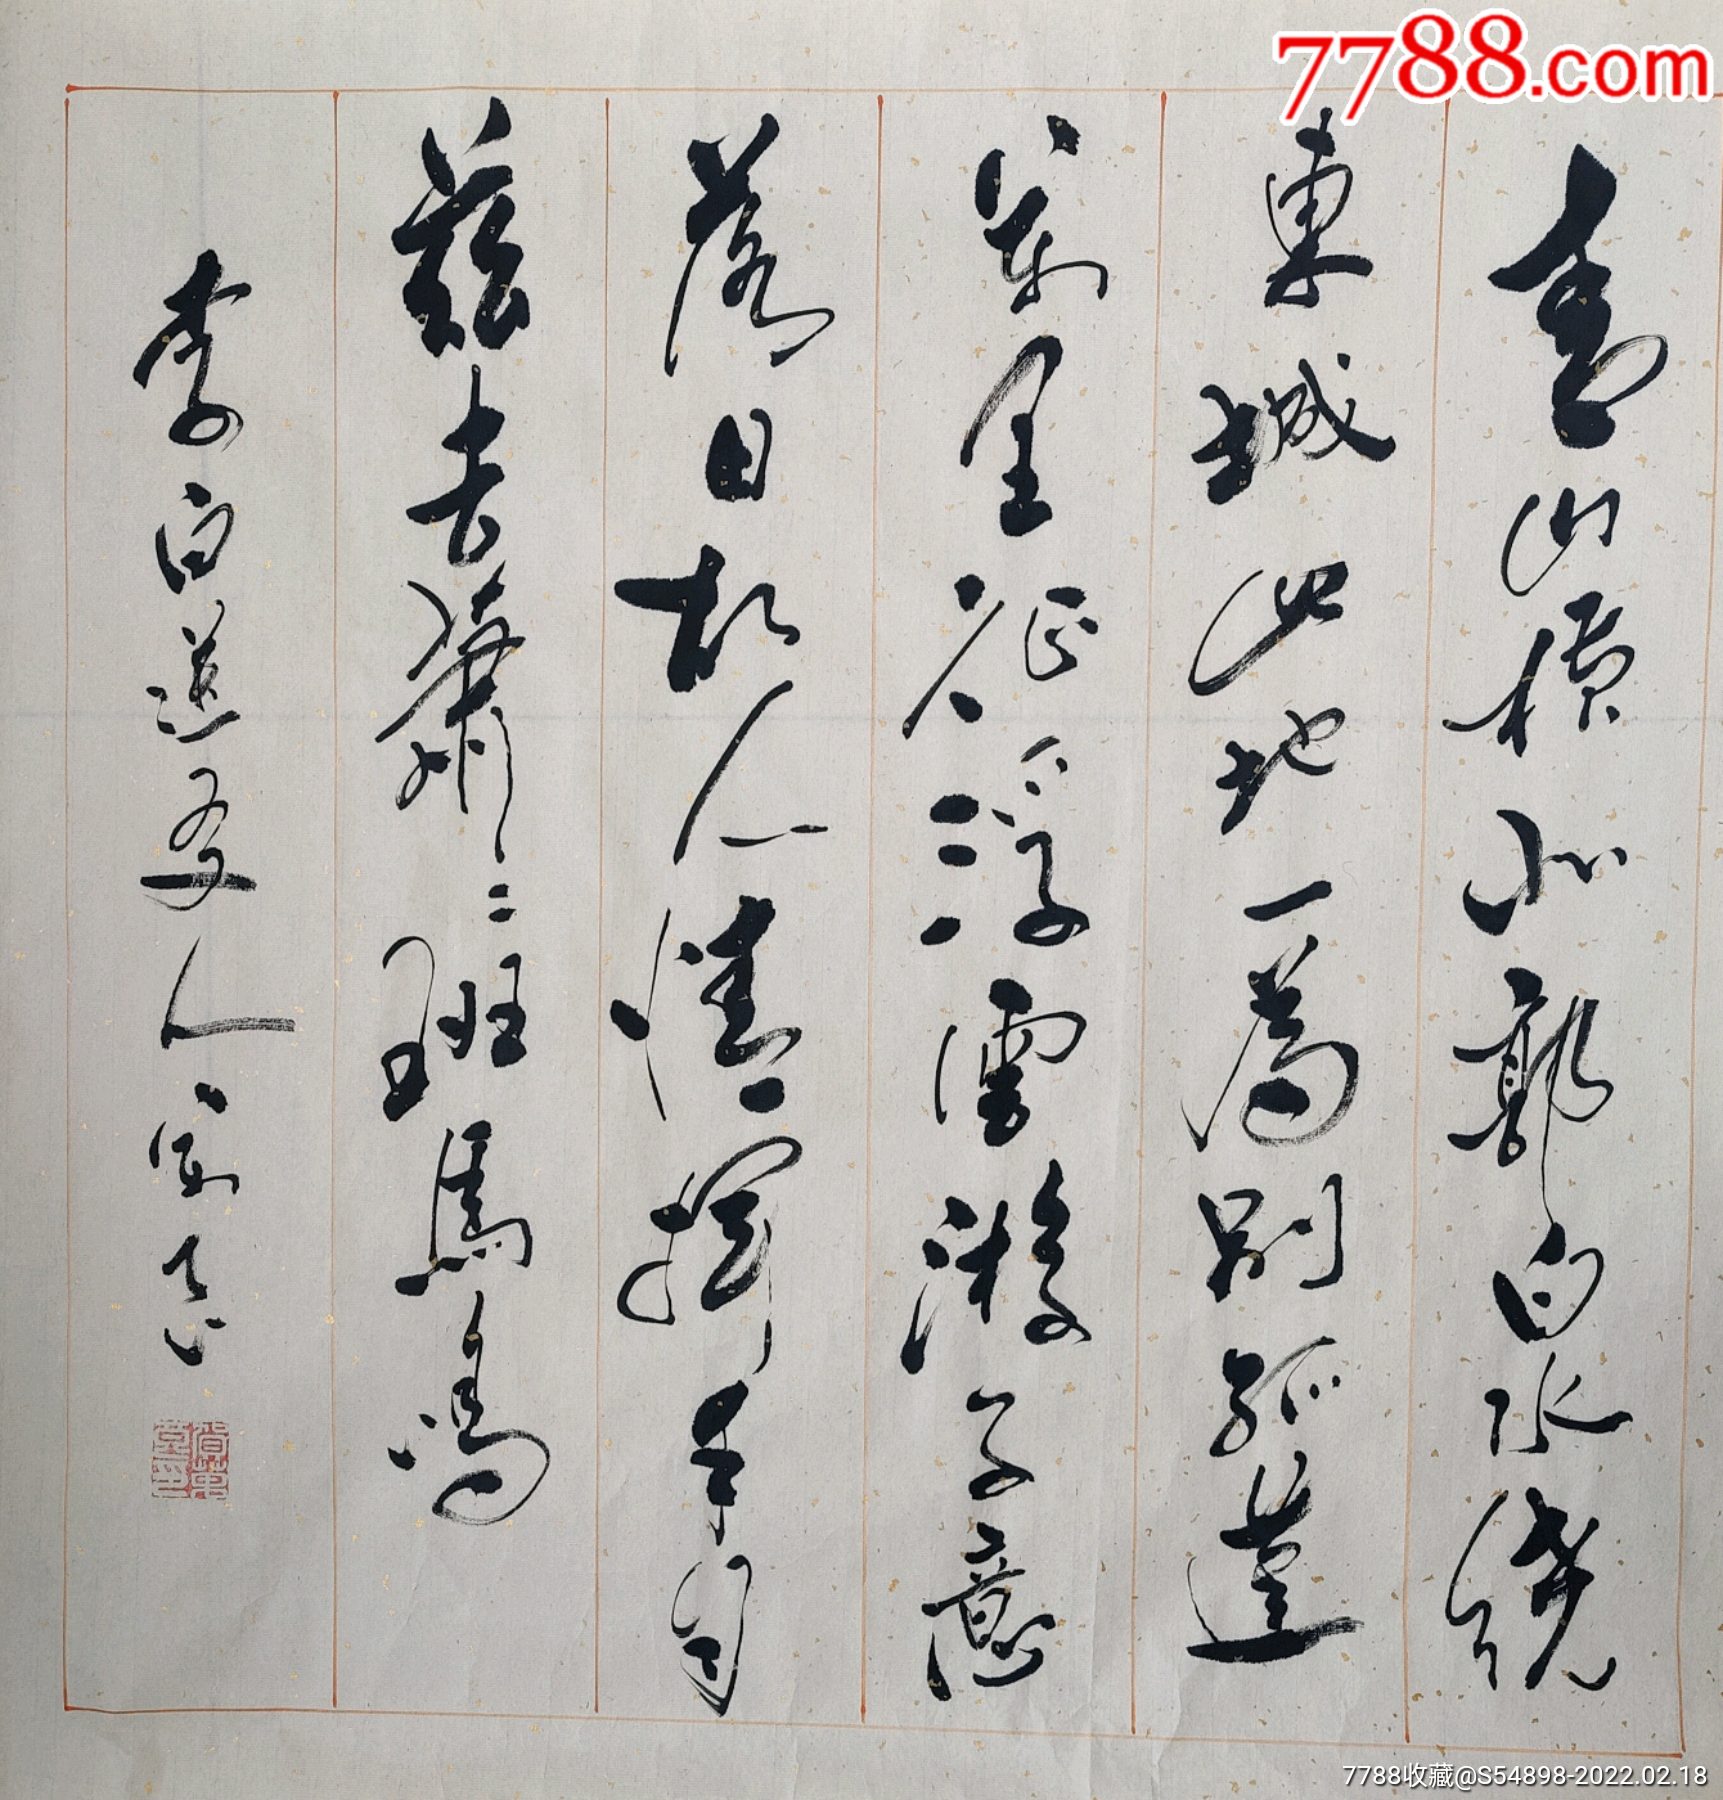 7788.com
青山橫北郭白水繞
東城此地一為別孤蓬
萬里征浮雲游子意
落日故人情揮手自
茲去蕭々班馬鳴
李白送友人
7788收藏@S54898-2022.02.18